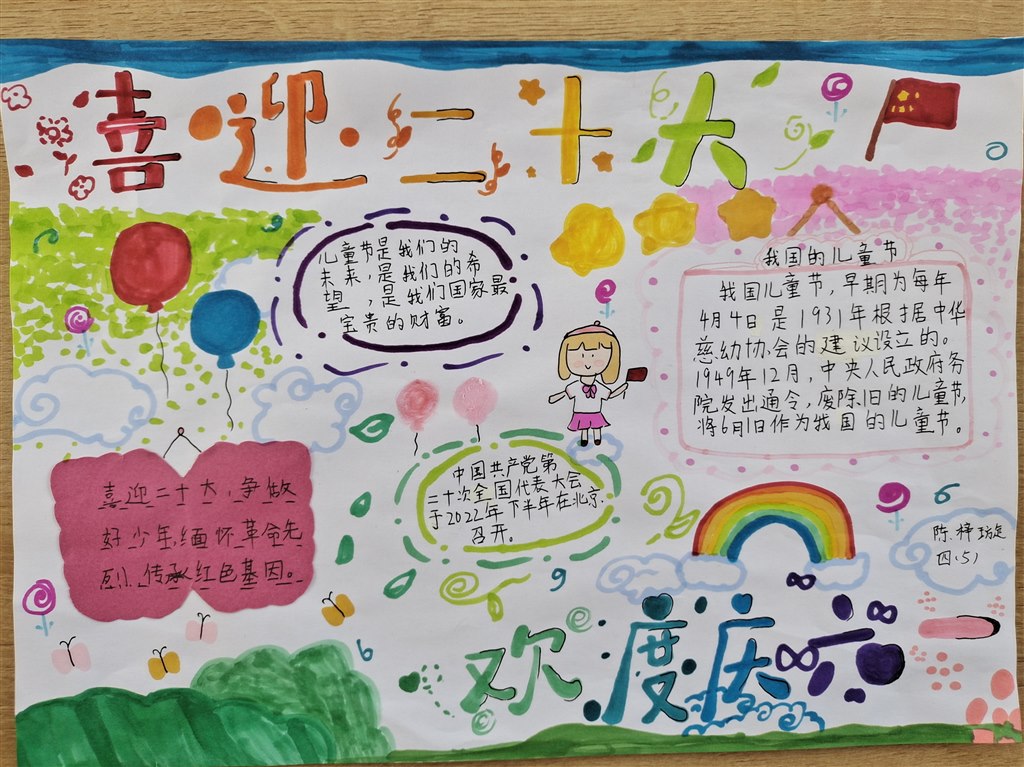 喜迎二十大
儿童节是我们的
未来,是我们的希
望,是我们国家最
宝贵的财富。
我国的儿童节
我国儿童节,早期为每年
4月4日是1931年根据中华
慈幼协会的建议设立的。
1949年12月,中央人民政府务
院发出通令,废除旧的儿童节,
将6月1日作为我国的儿童节。
中国共产党第
二十次全国代表大会
于2022年下半年在北京
召开。
喜迎二十大,争做
好少年,缅怀革命先
烈,传承红色基因。
陈择璇
四(5)
欢度六一